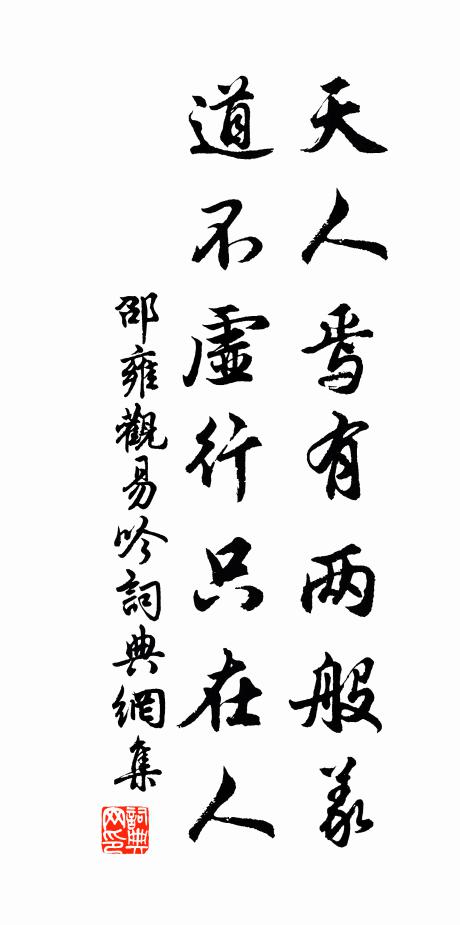 天人焉有两般義
道不虛行只在人
邵雍觀易吟詞典網集
詞典网印